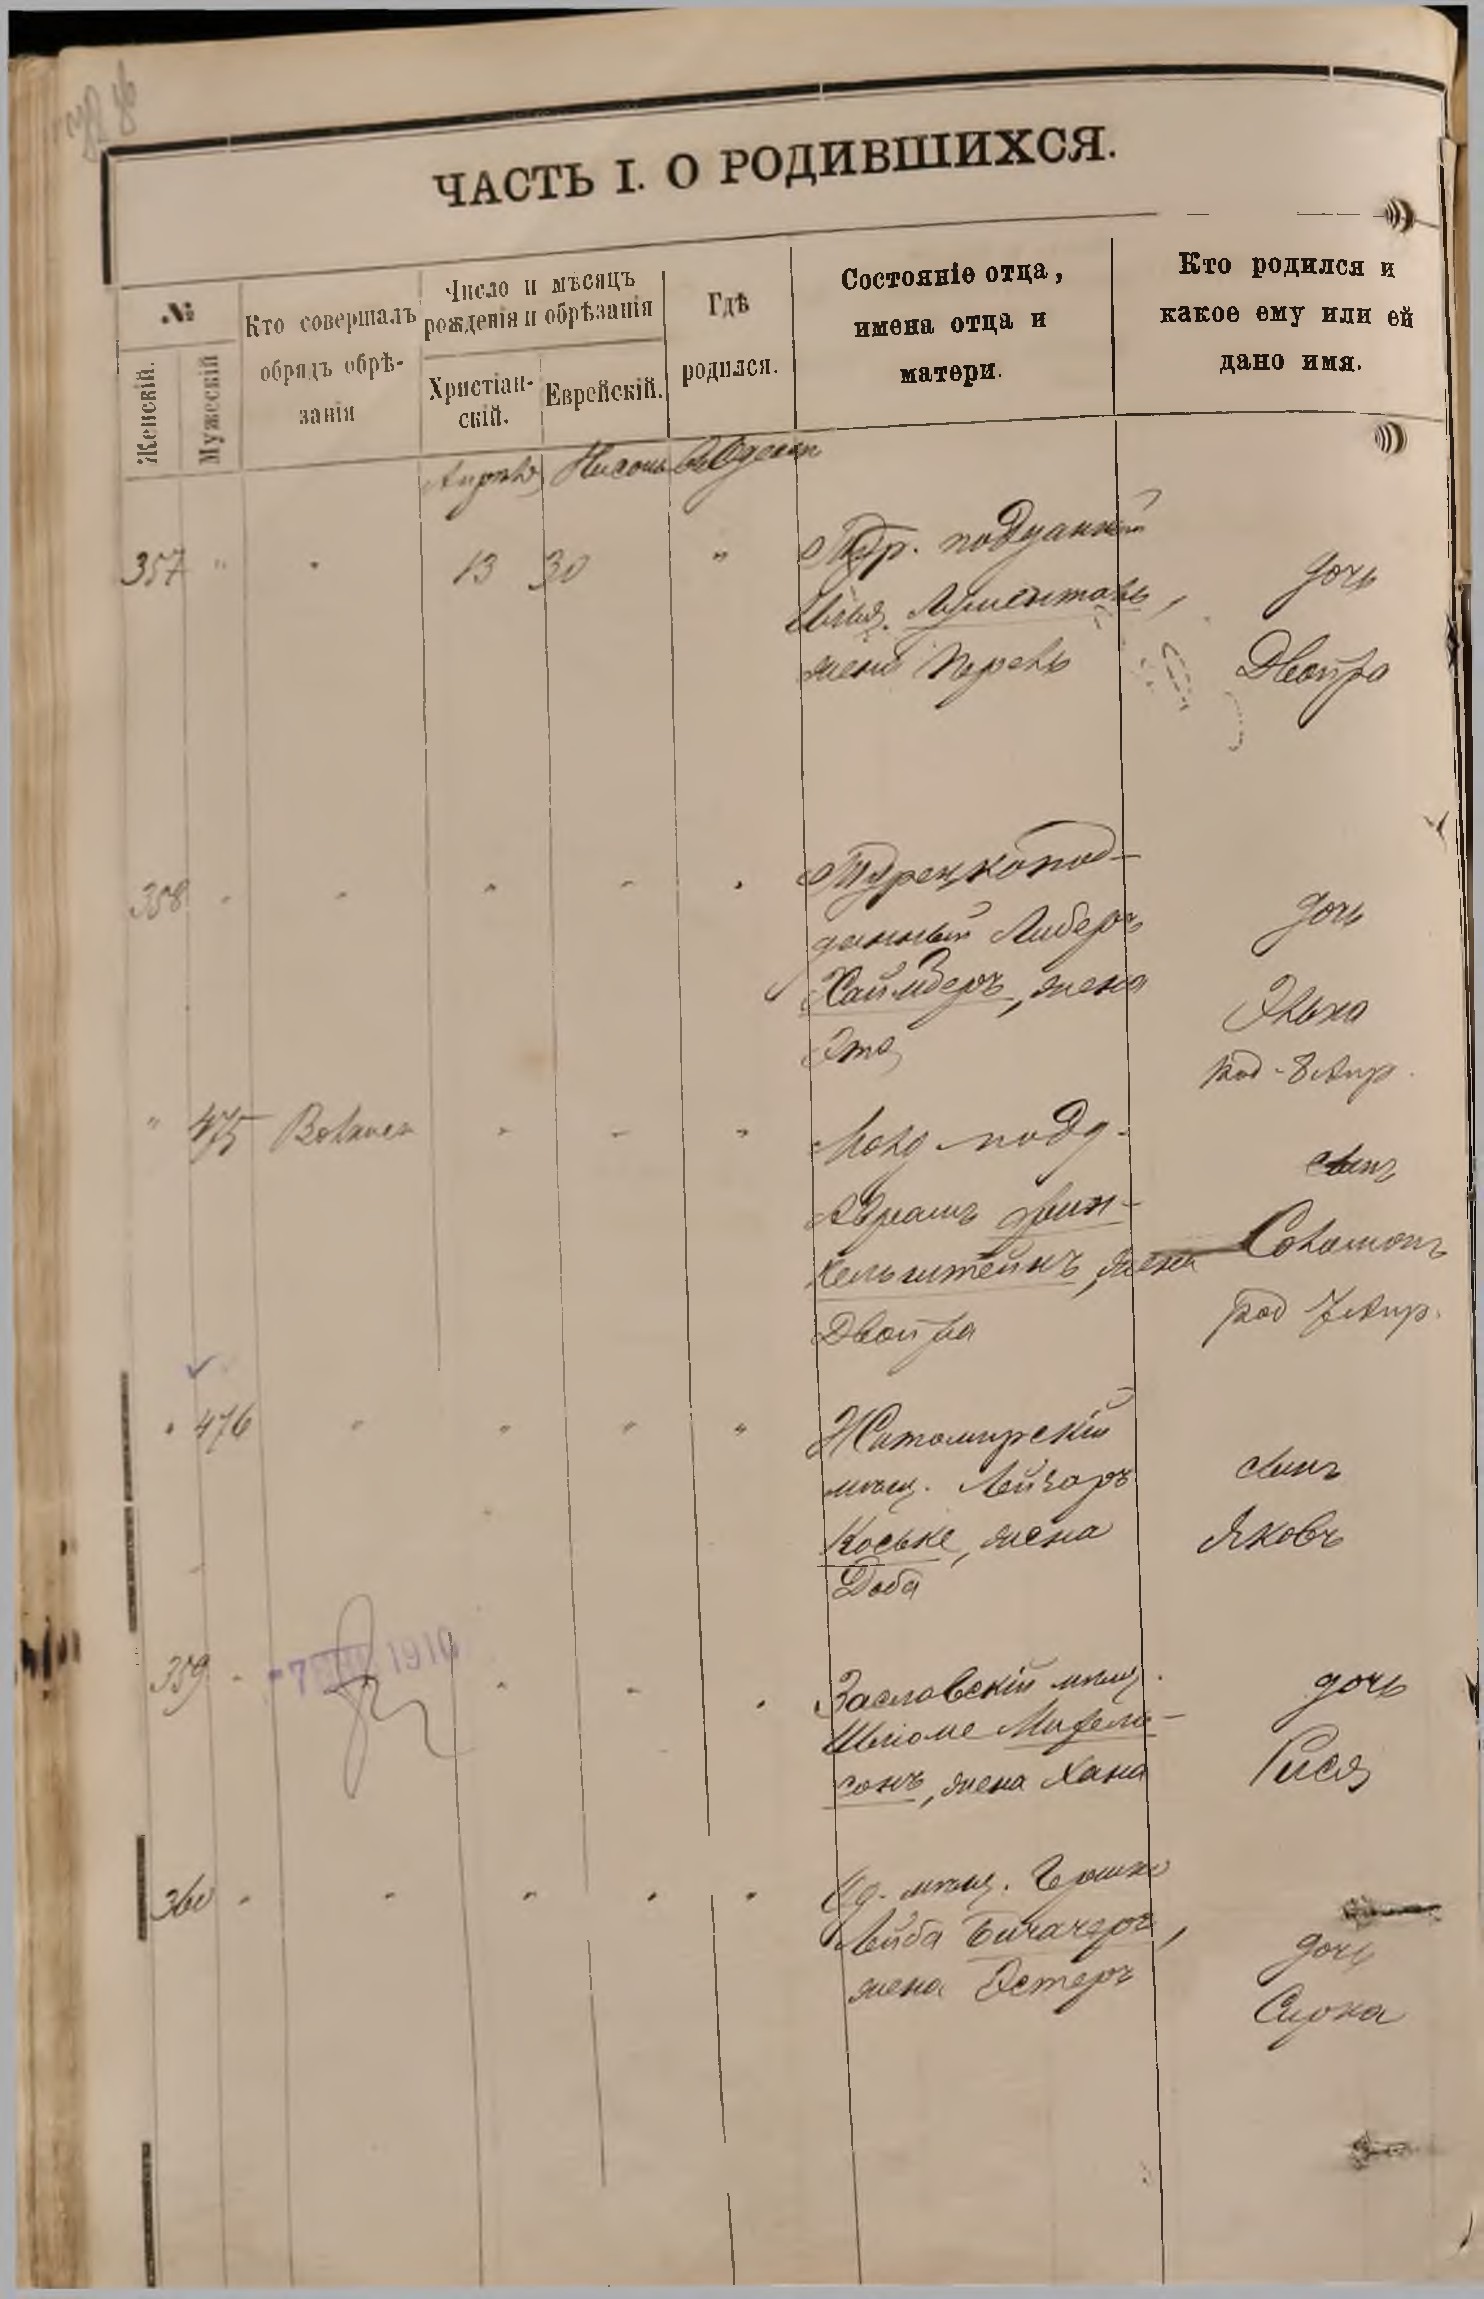 ЧАСТЬ I. О РОДИВШИХСЯ.
№
Женскій.
Мужескій
Кто совершалъ
обрядъ обрѣ-
занія
Число и мѣсяцъ
рожденія и обрѣзанія
Христіан-
скій.
Еврейскій.
Гдѣ
родился.
Состояніе отца,
имена отца и
матери.
Кто родился и
какое ему или ей
дано имя.
Апрѣль Нисонъ въ Одессѣ
357 " " 13 30 "
Тур. подданный
жена Перель
дочь
Двойра
358
Турецкопод-
данный Либеръ
Хаймзеръ, жена
Эта
дочь
Элька
род. 8 Апр.
" 475
Молд подд.
Абрамъ Фин-
кельштейнъ, жена
Двойра
сынъ
Соломонъ
род 7 Апр.
476
Житомирскій
мѣщ. Лейзоръ
Коське, жена
Доба
сынъ
Яковъ
359
-7 1910
Заславскій мѣщ.
Шлиоме Мифель-
сонъ, жена Хана
дочь
Рися
360
Од. мѣщ. Гершко
Лейба Бичачеръ,
жена Эстеръ
дочь
Сирка